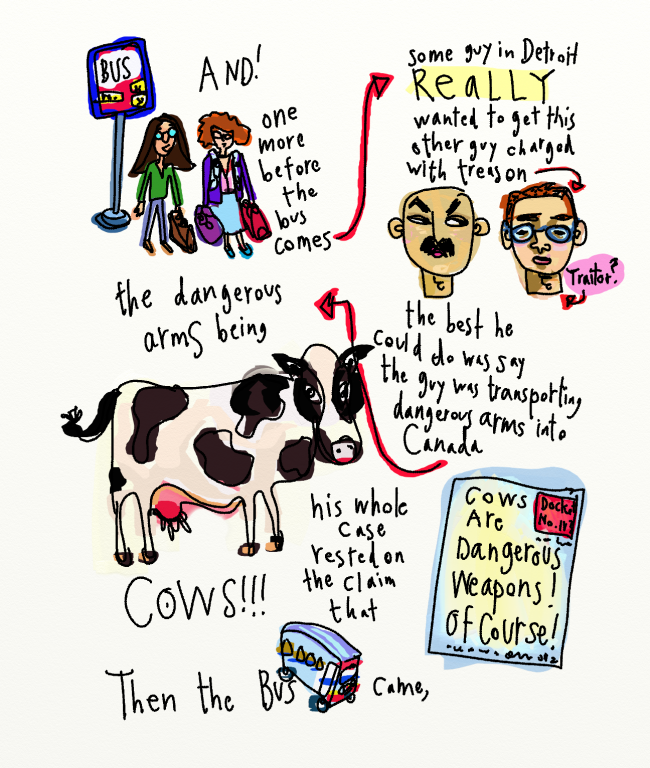 BUS
AND!
one
more
before
the
bus
comes
some guy in Detroit
REALLY
wanted to get this
other guy charged
with treason
Traitor?
the best he
could do was say
the guy was transporting
dangerous arms into
Canada
the dangerous
arms being
COWS!!!
his whole
case
rested on
the claim
that
Cows
Are
Dangerous
Weapons!
Of Course!
Dock
No.
Then the Bus came,